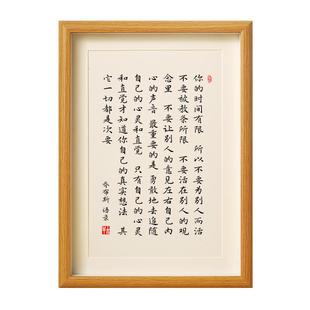 你的时间有限 所以不要为别人而活
不要被教条所限 不要活在别人的观
念里 不要让别人的意见左右自己内
心的声音 最重要的是 勇敢地去追随
自己的心灵和直觉 只有自己的心灵
和直觉才知道你自己的真实想法 其
它一切都是次要
乔布斯 语录